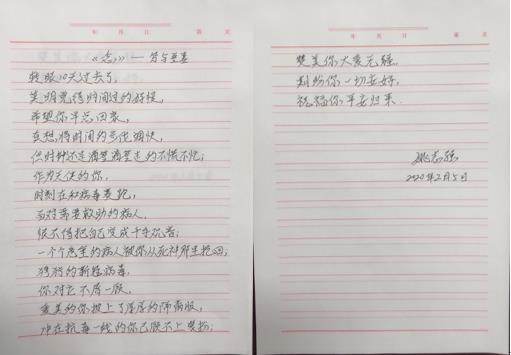 年 月 日 第 页
《念》——
转眼10天过去了,
时间过的
希望你早点回家,
真想将时间的步伐调快,
但时钟还是滴答滴答走的不慌不忙;
作为天使的你,
时刻在和病毒赛跑,
面对需要救助的病人,
恨不得把自己变成千手观音;
一个个危重的病人被你从死神那里抢回;
的新冠病毒,
你对它不屑一顾,
爱美的你披上了厚厚的防护服,
冲在抗毒一线的你已顾不上装扮;
年 月 日 第 页
赞美你大爱无疆,
期盼你一切安好,
祝福你平安归来
2020年2月5日